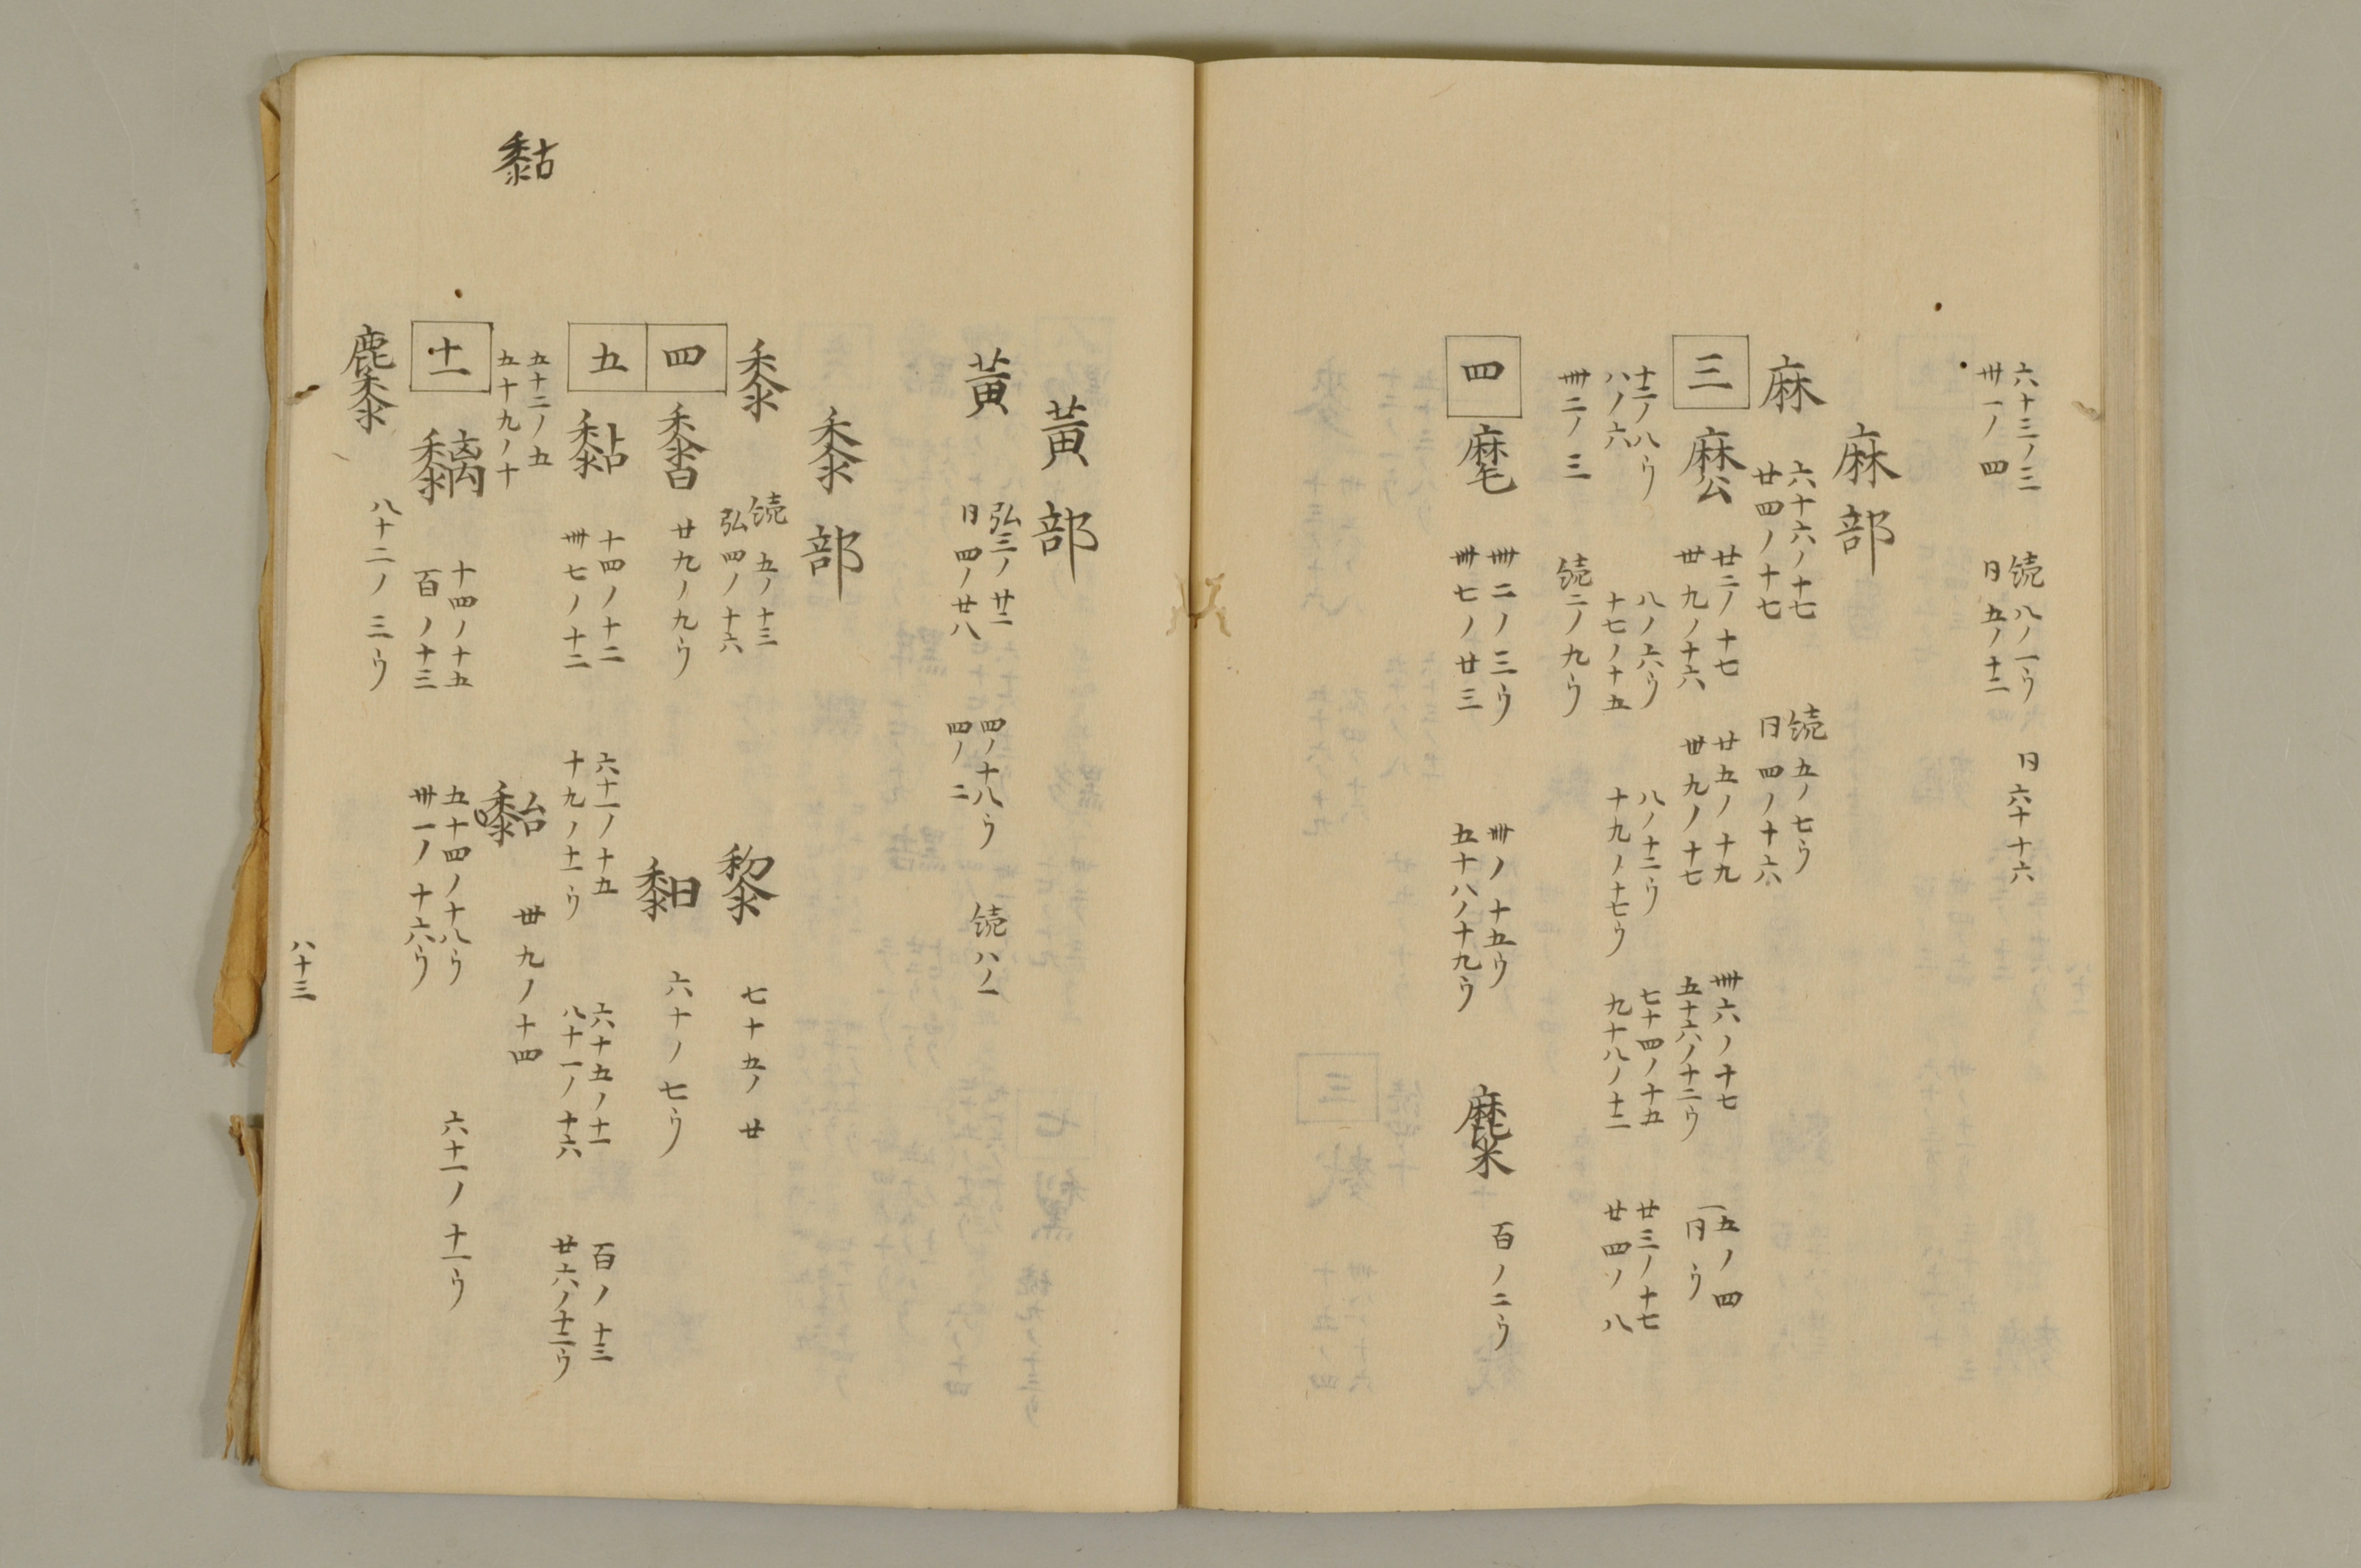 六十三ノ三 続 八ノ一ウ 日 六十 十六
卅一ノ四 日 五ノ十二
麻部
麻 六十六ノ十七 続 五ノ七ウ
廿四ノ十七 日 四ノ十六
三 麿 廿二ノ十七 廿五ノ十九 卌六ノ十七 一五ノ四
卅九ノ十六 卅九ノ十七 五十六ノ十二ウ 日ウ
十二ノ八ウ 八ノ六ウ 八ノ十二ウ 七十四ノ十五 廿三ノ十七
八ノ六 十七ノ十五 十九ノ十七ウ 九十八ノ十二 廿四ノ八
卌二ノ三 続二ノ九ウ
四 卌二ノ三ウ 卌ノ十五ウ 百ノ二ウ
卌七ノ廿三 五十八ノ十九ウ
黄部
黄 弘三ノ廿二 四ノ十八ウ 続 八ノ一
日 四ノ廿八 四ノ二
黍部
黍 続 五ノ十三 黎 七十五ノ廿
弘四ノ十六
四 廿九ノ九ウ 六十ノ七ウ
五 黏 十四ノ十二 六十一ノ十五 六十五ノ十一 百ノ十三
卌七ノ十二 十九ノ十一ウ 八十一ノ十六 廿六ノ十三ウ
黏
五十二ノ五 卅九ノ十四
五十九ノ十
十一 黐 十四ノ十五 五十四ノ十八ウ 六十一ノ十一ウ
百ノ十三 卅一ノ十六ウ
八十二ノ三ウ
八十三